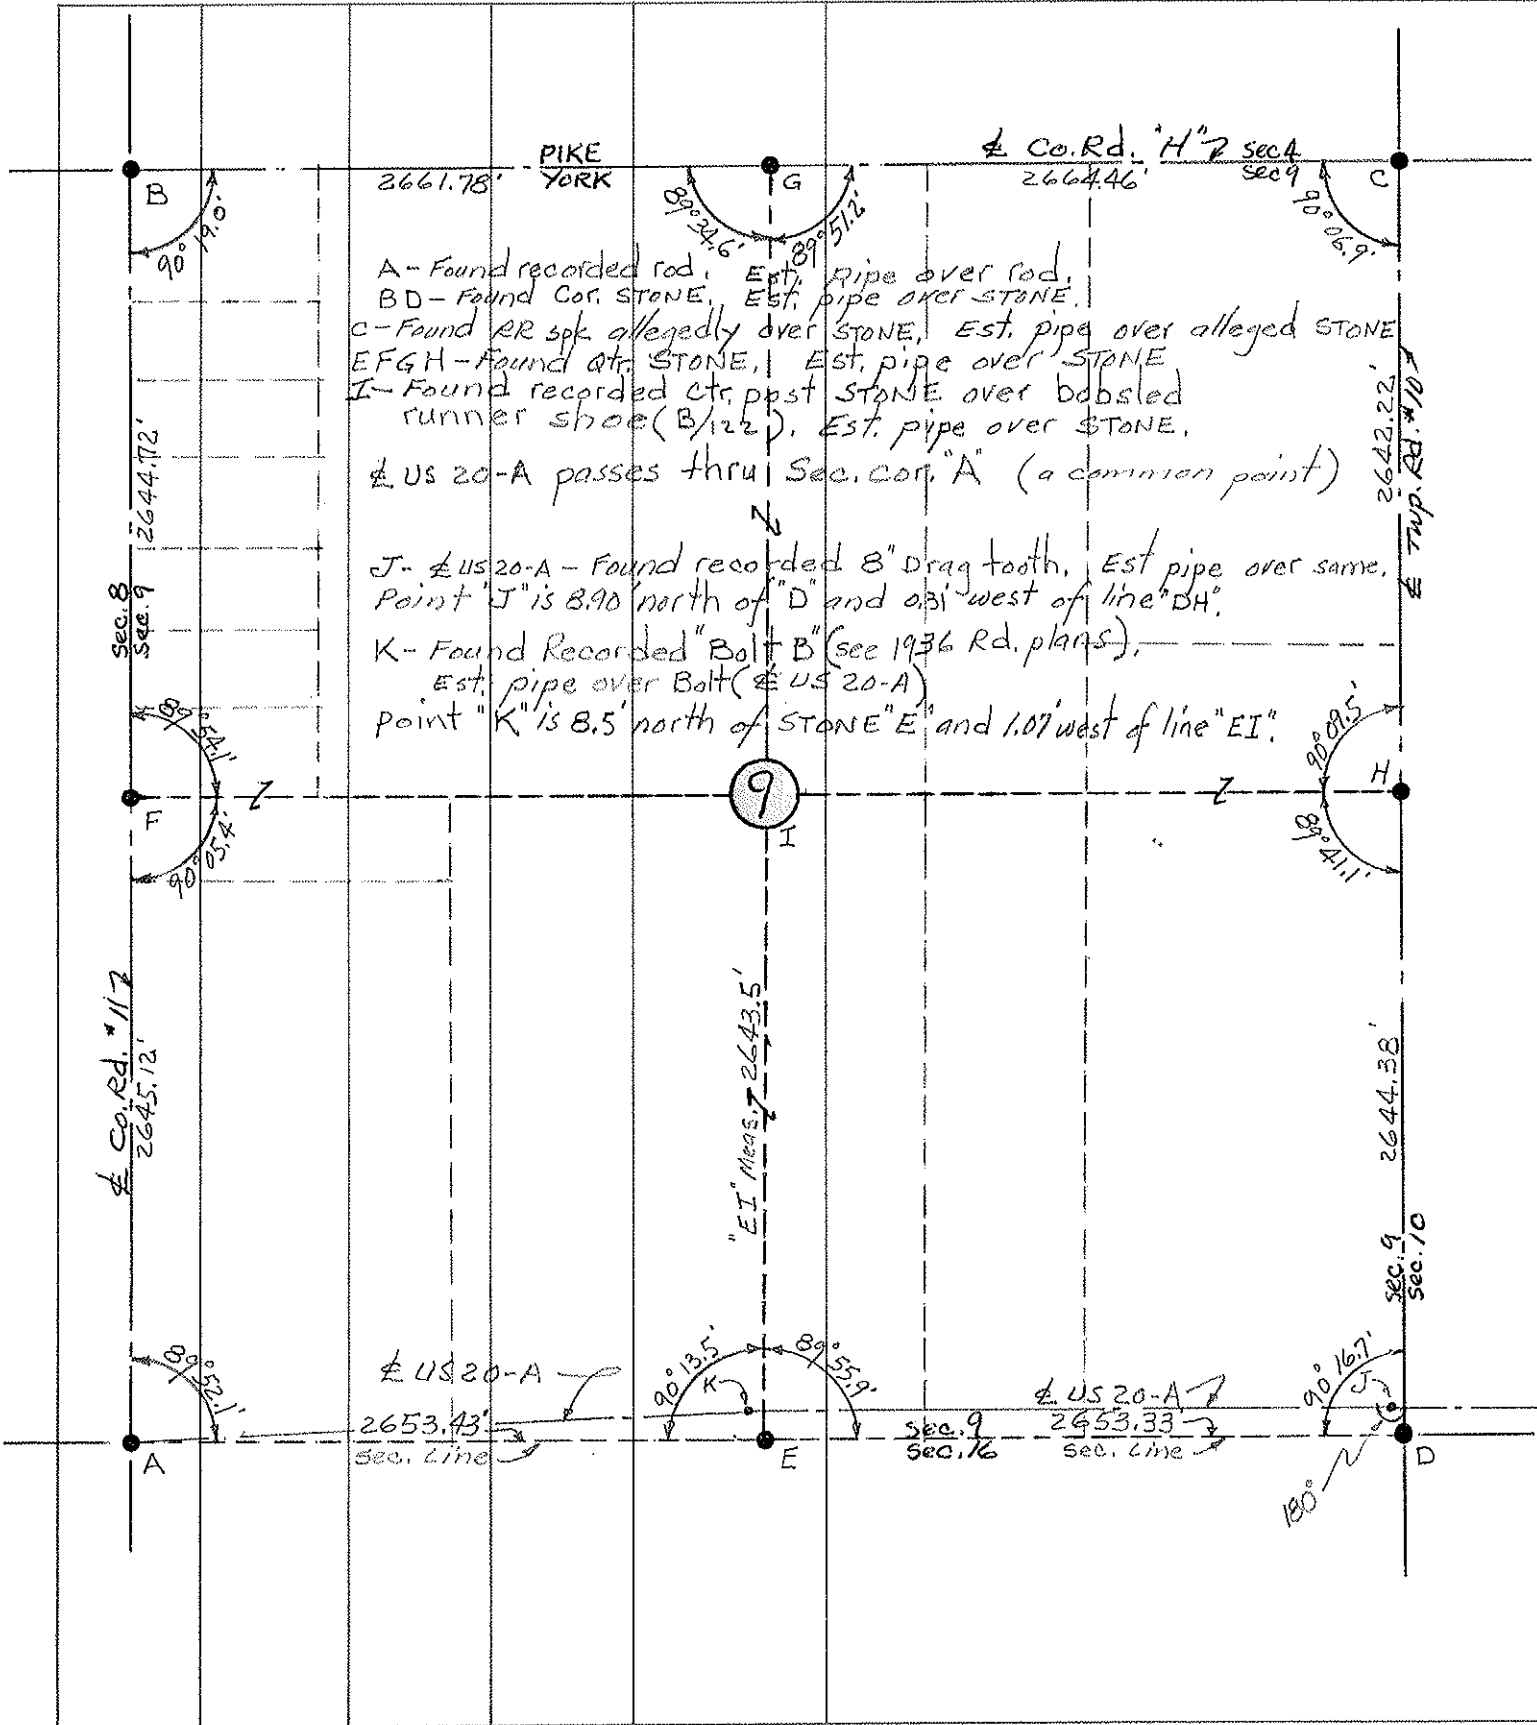 PIKE
YORK
℄ Co. Rd. "H"
sec 4
sec 9
B
2661.78'
G
2664.46'
C
90° 19.0'
89° 34.6'
89° 51.2'
90° 06.9'
A - Found recorded rod. Est. pipe over rod.
BD - Found Cor. STONE. Est. pipe over STONE.
C - Found RR spk allegedly over STONE. Est. pipe over alleged STONE
EFGH - Found Qtr. STONE. Est. pipe over STONE
I - Found recorded ctr. post STONE over bobsled
runner shoe (B/122). Est. pipe over STONE.
℄ US 20-A passes thru Sec. cor. "A" (a common point)
J - ℄ US 20-A - Found recorded 8" Drag tooth. Est pipe over same.
Point "J" is 8.90' north of "D" and 0.31' west of line "DH".
K - Found Recorded "Bolt B" (see 1936 Rd. plans).
Est. pipe over Bolt (℄ US 20-A)
point "K" is 8.5' north of STONE "E" and 1.07' west of line "EI".
2644.72'
Sec. 8
Sec. 9
2642.22'
℄ Twp. Rd. #10
89° 54.1'
F
90° 05.4'
9
I
90° 09.5'
H
89° 41.1'
℄ Co. Rd. #11
2645.12'
"EI" Meas. 2643.5'
2644.38'
sec. 9
sec. 10
89° 52.1'
℄ US 20-A
90° 13.5'
K
89° 55.9'
℄ US 20-A
90° 16.7'
J
2653.43'
sec. Line
sec. 9
sec. 16
2653.33
sec. Line
A
E
D
180°